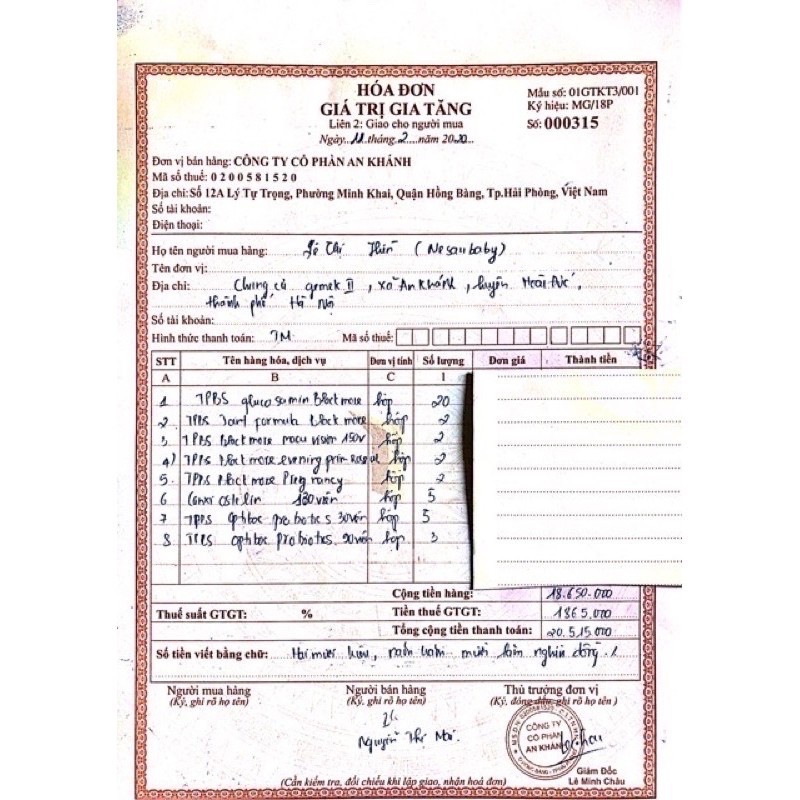 HÓA ĐƠN
GIÁ TRỊ GIA TĂNG
Liên 2: Giao cho người mua
Ngày 11 tháng 2 năm 2020
Mẫu số: 01GTKT3/001
Ký hiệu: MG/18P
Số: 000315
Đơn vị bán hàng: CÔNG TY CỔ PHẦN AN KHÁNH
Mã số thuế: 0200581520
Địa chỉ: Số 12A Lý Tự Trọng, Phường Minh Khai, Quận Hồng Bàng, Tp.Hải Phòng, Việt Nam
Số tài khoản:
Điện thoại:
Họ tên người mua hàng: Lê Thị (Nesaubaby)
Tên đơn vị:
Địa chỉ: Chung cư gemek II, xã An Khánh, huyện Hoài Đức,
thành phố Hà Nội
Số tài khoản:
Hình thức thanh toán: TM Mã số thuế:
STT Tên hàng hóa, dịch vụ Đơn vị tính Số lượng Đơn giá Thành tiền
A B C 1
1 TPBS glucosamin Blackmore hộp 20
2 TPBS Joint formula Blackmore hộp 2
3 TPBS Blackmore macu vision 150v hộp 2
4 TPBS Blackmore evening prim hộp 2
5 TPBS Blackmore Pregnancy hộp 2
6 ostelin 130 viên hộp 5
7 TPBS optibac probiotics 30 viên hộp 5
8 TPBS optibac probiotics 90 viên hộp 3
Cộng tiền hàng: 18.650.000
Thuế suất GTGT: % Tiền thuế GTGT: 1865.000
Tổng cộng tiền thanh toán: 20.515.000
Số tiền viết bằng chữ: Hai mươi triệu, năm trăm mười lăm nghìn đồng./
Người mua hàng Người bán hàng Thủ trưởng đơn vị
(Ký, ghi rõ họ tên) (Ký, ghi rõ họ tên) (Ký, đóng dấu, ghi rõ họ tên)
CÔNG TY
CỔ PHẦN
AN KHÁNH
Nguyễn Thị
Giám Đốc
Lê Minh Châu
(Cần kiểm tra, đối chiếu khi lập giao, nhận hoá đơn)